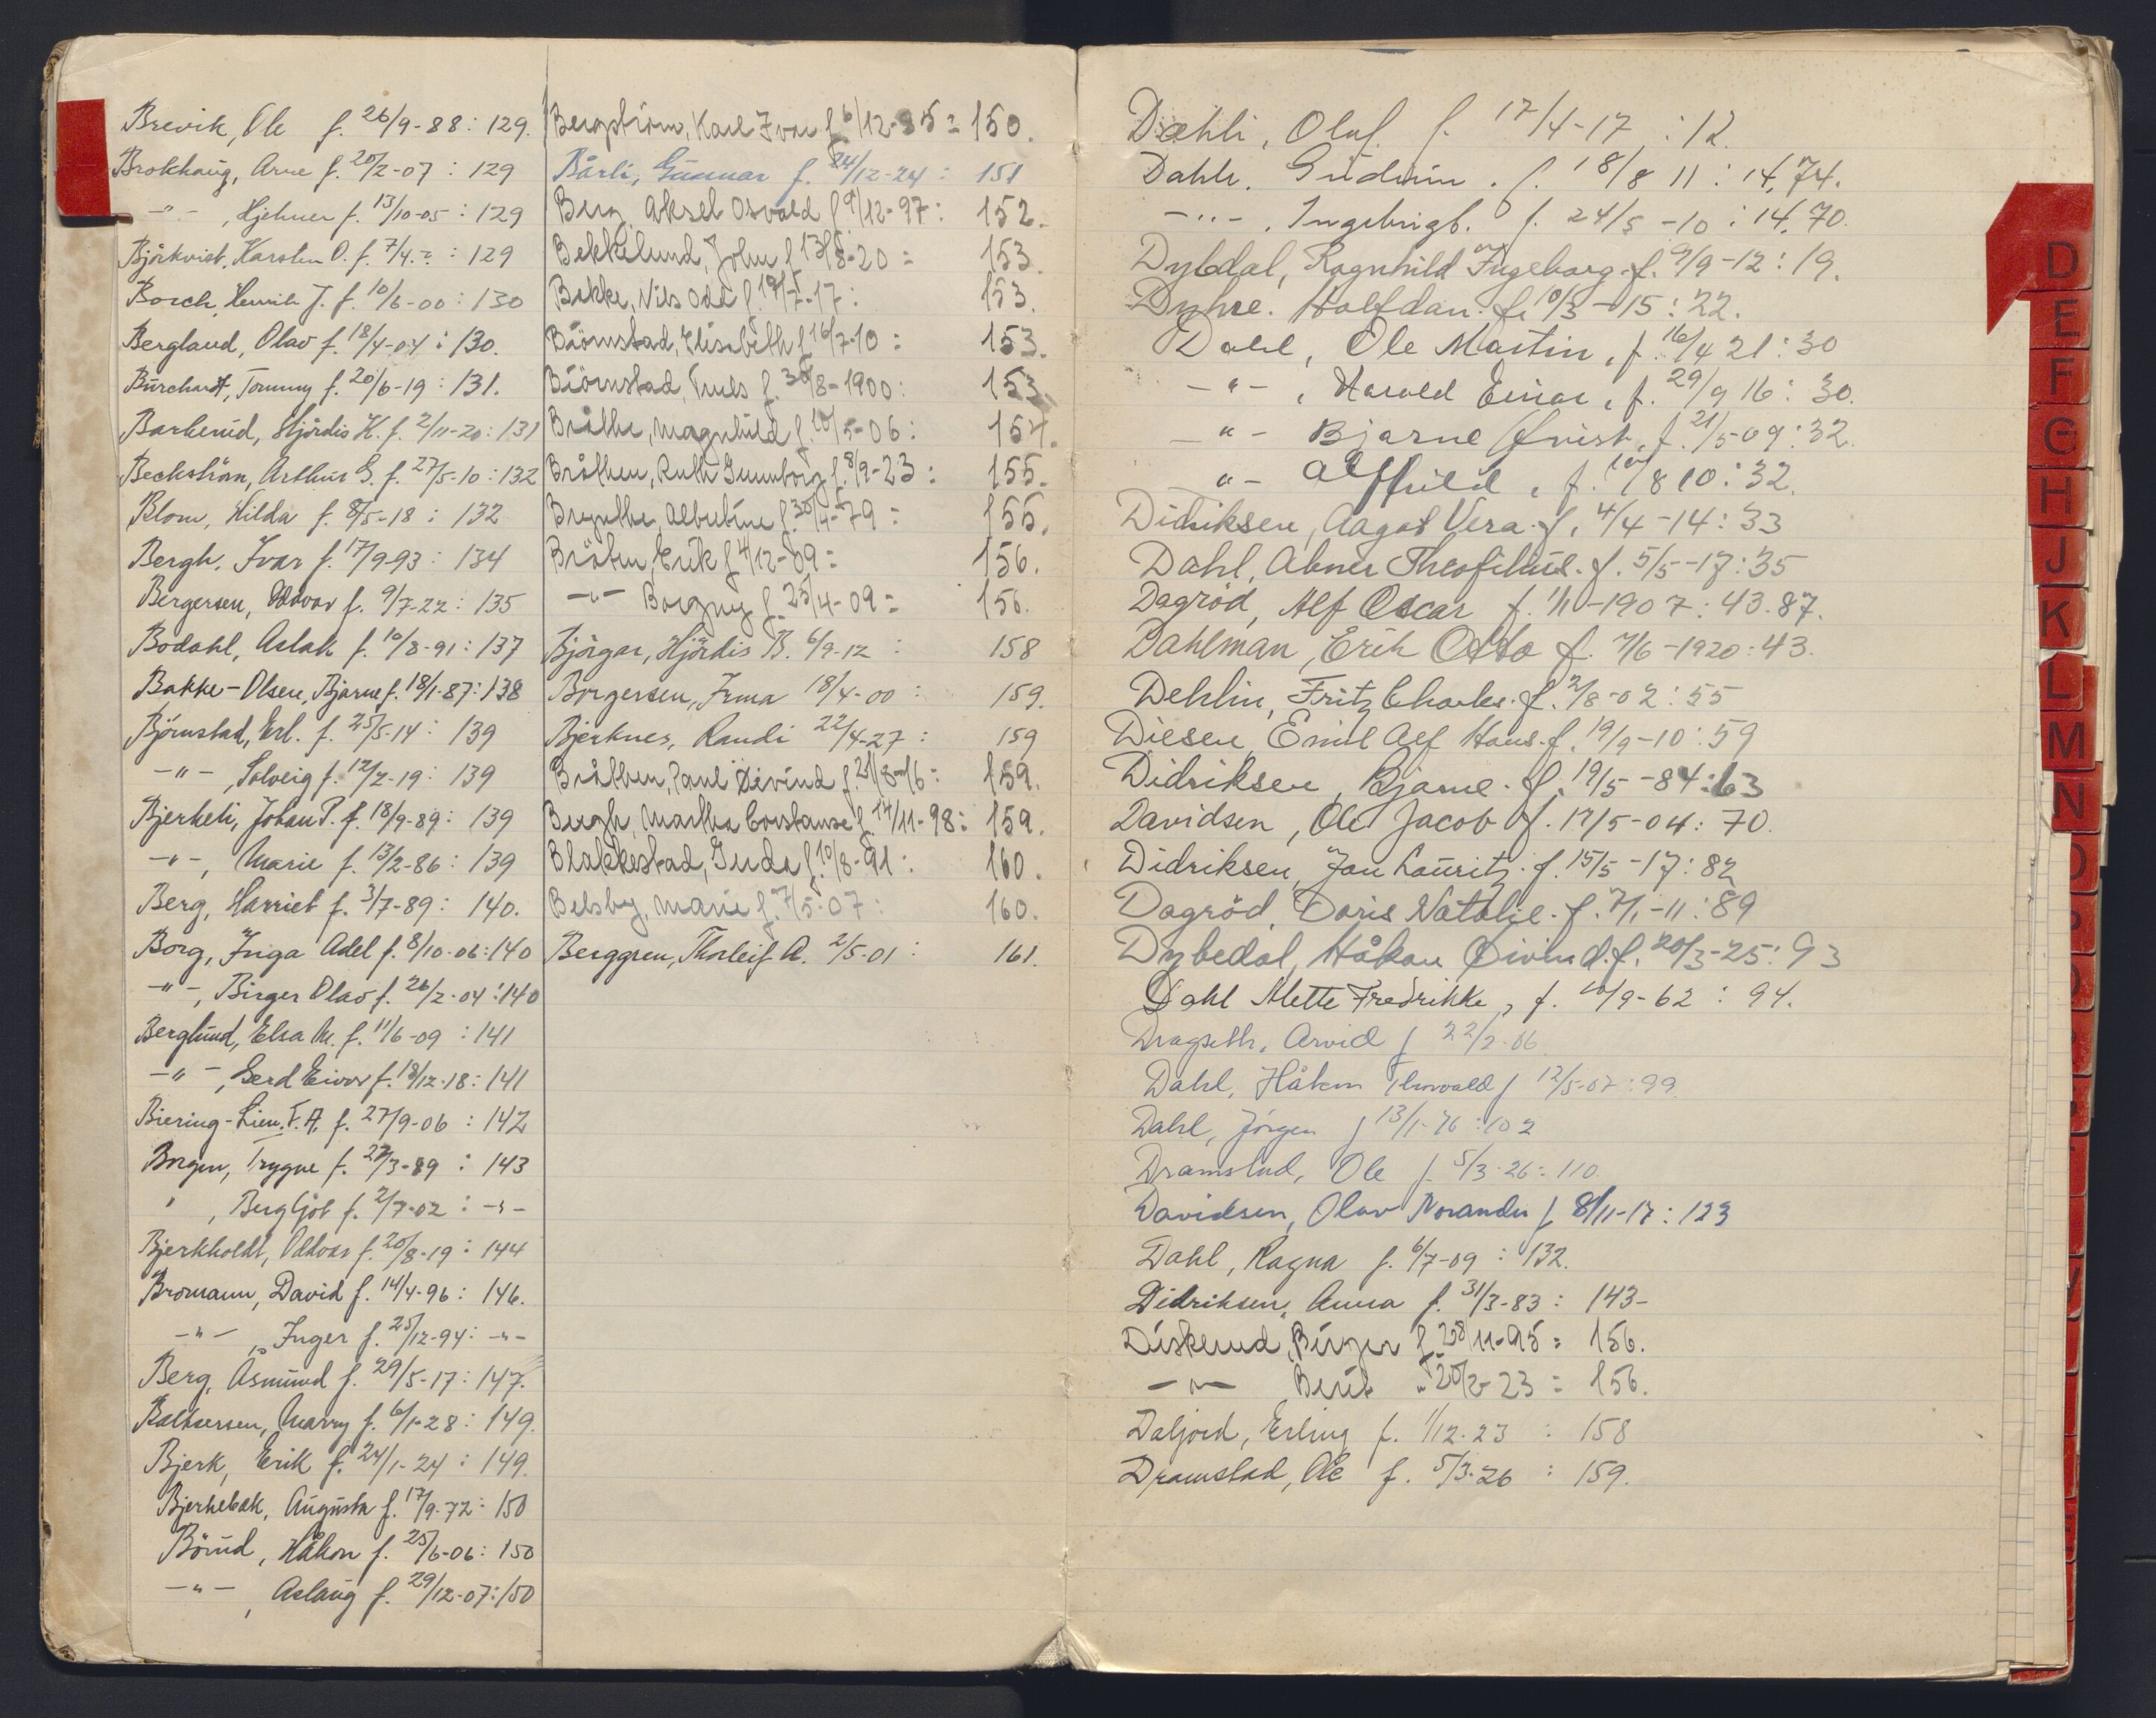 Brevik, Ole f. 26/9-88: 129.
Brokhaug, Arne f. 20/2-07: 129
-"-, Hjelmer f. 13/10-05: 129
Björkvist, Karsten O. f. 7/4.?: 129
Borch, Henrik J. f. 10/6-00: 130
Bergland, Olav f. 18/4-04: 130.
Burchardt, Tommy f. 20/6-19: 131.
Barkerud, Hjördis K. f. 2/11-20: 131
Beckström, Arthur G. f. 27/5-10: 132
Blom, Hilda f. 8/5-18: 132
Bergh, Ivar f. 17/9-93: 134
Bergersen, Oddvar f. 9/7-22: 135
Bodahl, Aslak f. 10/8-91: 137
Bakke-Olsen, Bjarne f. 18/1-87: 138
Björnstad, Erl. f. 25/5-14: 139
-"-, Solveig f. 12/2-19: 139
Bjerkeli, Johan P. f. 18/9-89: 139
-"-, Marie f. 13/2-86: 139
Berg, Harriet f. 3/7-89: 140.
Borg, Inga Adel f. 8/10-06: 140
-"-, Birger Olav f. 26/2-04: 140
Berglund, Elsa M. f. 11/6-09: 141
-"-, Gerd Eivor f. 18/12-18: 141
Biering-Lien, T.A. f. 27/9-06: 142
Borgen, Trygve f. 27/3-89: 143
", Bergljot f. 2/7-02: -"-
Bjerkholdt, Oddvar f. 20/8-19: 144
Bromann, David f. 14/4-96: 146.
-"-, Inger f. 25/12-94: -"-
Berg, Asmund f. 29/5-17: 147.
Baltsersen, Marry f. 6/1-28: 149.
Bjerk, Erik f. 24/1-24: 149.
Bjerkebæk, Augusta f. 17/9-72: 150
Börud, Håkon f. 25/6-06: 150
-"-, Aslaug f. 29/12-07: 150
Bergström, Karl Ivar f 6/12-95: 150.
Bårli, Gunnar f. 24/12-24: 151
Berg, Aksel Osvald f 9/12-97: 152.
Bekkelund, John f 13/8-20: 153.
Bakke, Nils Odd f 19/7-17: 153.
Björnstad, Elisabeth f 16/7-10: 153.
Björnstad, Truls f. 30/8-1900: 153
Bråthe, Magnhild f. 10/5-06: 154.
Bråthen, Ruth Gunnborg f. 8/9-23: 155.
Albertine f. 30/4-79: 155.
Bråten, Erik f 4/12-09: 156.
-"- Borgny f. 25/4-09: 156.
Björgar, Hjördis B. 6/9-12: 158
Borgersen, Irma 18/4-00: 159.
Bjerknes, Randi 22/4-27: 159
Bråthen, Paul Öivind f. 21/8-16: 159.
Bergh, Martha Constanse f 14/11-98: 159.
Blakkestad, Guda f. 10/8-91: 160.
Belsby, Marie f. 7/5-07: 160.
Berggren, Thorleif A. 2/5-01: 161.
Dæhli, Oluf. f. 17/4-17: 12.
Dahle. Gudrun. f. 18/8 11: 14, 74.
-"-. Ingebrigt. f. 24/5-10: 14, 70.
Dybdal, Ragnhild Ingeborg. f. 9/9-12: 19.
Dyhre. Halfdan. f. 10/3-15: 22.
Dahl, Ole Martin, f. 16/4 21: 30
-"-, Harald Einar, f. 29/9 16: 30.
-"- Bjarne Qvist, f. 21/5-09: 32.
-"- Alfhild, f. 10/8 10: 32.
Didriksen, Aagot Vera. f. 4/4-14: 33
Dahl, Abner Theofilius. f. 5/5-17: 35
Dagröd, Alf Oscar f. 1/11-1907: 43.87.
Dahlman, Erik Otto f. 7/6-1920: 43.
Dehlin, Fritz Charles. f. 2/8-02: 55
Diesen, Emil Alf Hans. f. 19/9-10: 59
Didriksen, Bjarne. f. 19/5-84: 63
Davidsen, Ole Jacob f. 17/5-04: 70.
Didriksen, Jan Lauritz. f. 15/5-17: 82
Dagröd, Doris Natalie. f. 7/1-11: 89
Dybedal, Håkon Öivind. f. 20/3-25: 93
Dahl Mette Fredrikke, f. 10/9-62: 94.
Dragseth, Arvid f 22/2-06
Dahl, Håkon Thorvald f 12/5-07: 99.
Dahl, Jörgen f 13/1-76: 102
Dramstad, Ole f. 5/3-26: 110.
Davidsen, Olav Norander f. 8/11-17: 123
Dahl, Ragna f. 6/7-09: 132.
Didriksen, Anna f. 31/3-83: 143-
Diskerud, Birger f 28/11-95: 156.
-"- Berit " 20/2-23: 156.
Daljord, Erling f. 1/12-23: 158
Dramstad, Ole f. 5/3-26: 159.
D
E
F
G
H
J
K
L
M
N